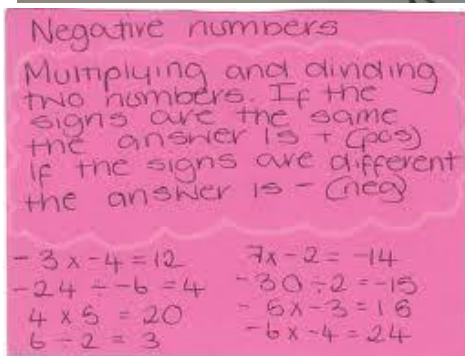 Negative numbers
Multiplying and dividing
two numbers. If the
signs are the same
the answer is + (pos)
If the signs are different
the answer is - (neg)
-3 x -4 = 12
-24 ÷ -6 = 4
4 x 5 = 20
6 ÷ 2 = 3
7x -2 = -14
-30 ÷ 2 = -15
-5x -3 = 15
-6x -4 = 24